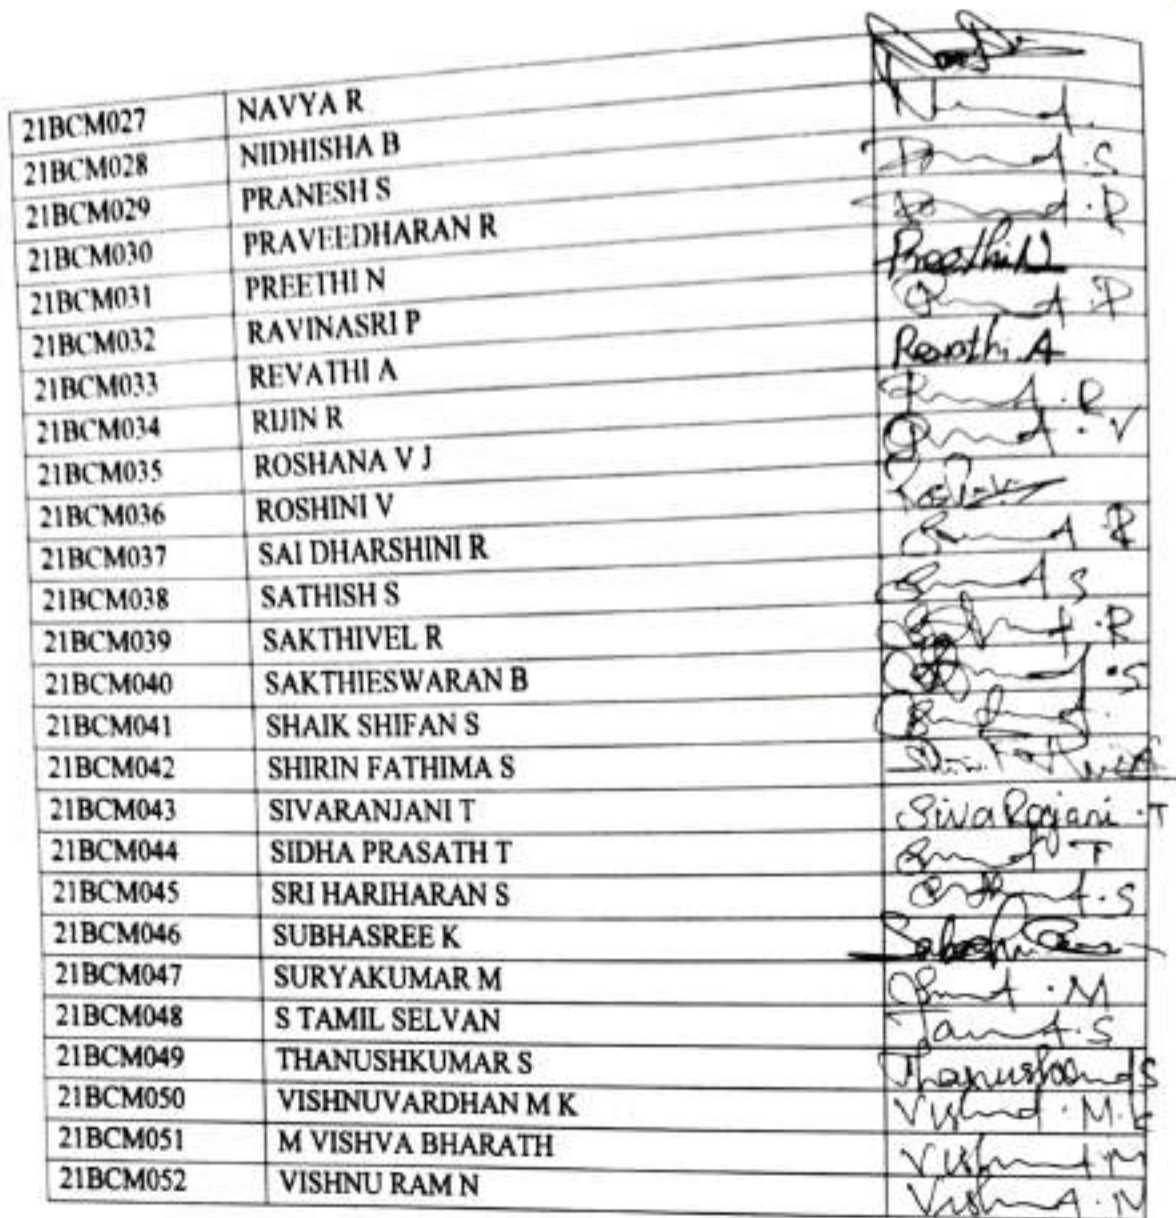 21BCM027 NAVYA R
21BCM028 NIDHISHA B
21BCM029 PRANESH S S
21BCM030 PRAVEEDHARAN R R
21BCM031 PREETHI N Preethi N
21BCM032 RAVINASRI P P
21BCM033 REVATHI A Revathi A
21BCM034 RIJIN R R
21BCM035 ROSHANA V J V
21BCM036 ROSHINI V
21BCM037 SAI DHARSHINI R R
21BCM038 SATHISH S S
21BCM039 SAKTHIVEL R R
21BCM040 SAKTHIESWARAN B S
21BCM041 SHAIK SHIFAN S
21BCM042 SHIRIN FATHIMA S
21BCM043 SIVARANJANI T T
21BCM044 SIDHA PRASATH T T
21BCM045 SRI HARIHARAN S S
21BCM046 SUBHASREE K
21BCM047 SURYAKUMAR M M
21BCM048 S TAMIL SELVAN S
21BCM049 THANUSHKUMAR S S
21BCM050 VISHNUVARDHAN M K M.K
21BCM051 M VISHVA BHARATH M
21BCM052 VISHNU RAM N N